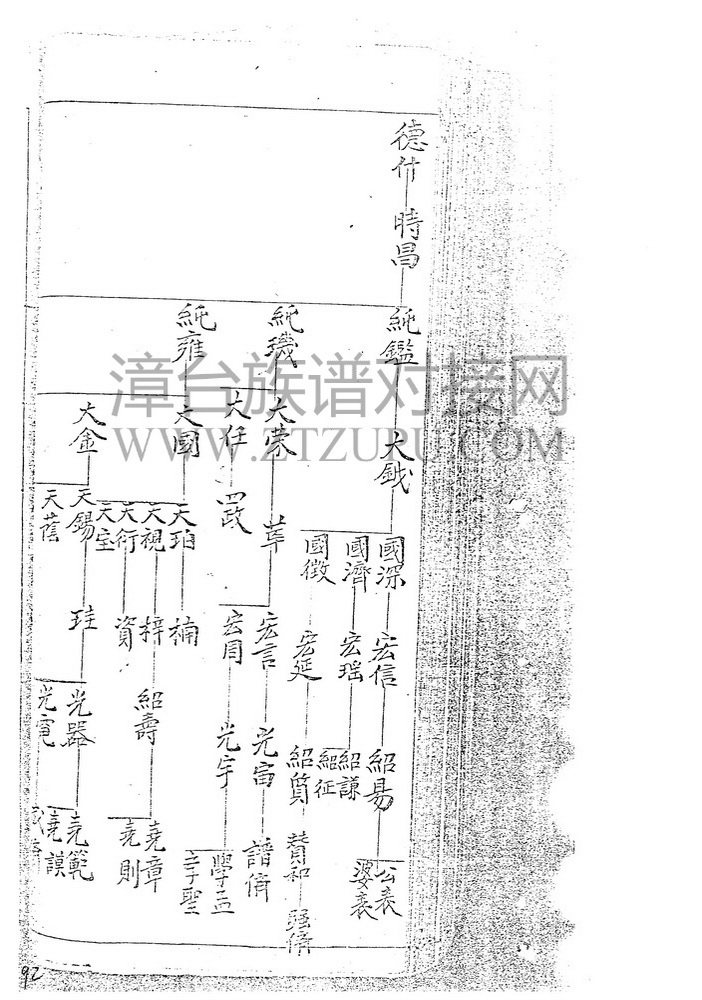 德什 時昌
純鑑 大鉞
國深 宏信 紹易
公表
婆表
國濟 宏瑶
紹謙
紹征
國徵 宏延 紹質 贊和
純璣 大業 莘
宏言 光宙 譜脩
宏周 光宇
學孟
學聖
大任 四政
純雍
大國
天珀 楠
天視 梓 紹壽
堯章
堯則
天衍 資
天室
大金
天錫 珪
光器
堯範
堯謨
光寬
天蔭
漳台族谱对接网
WWW.ZTZUPU.COM
92